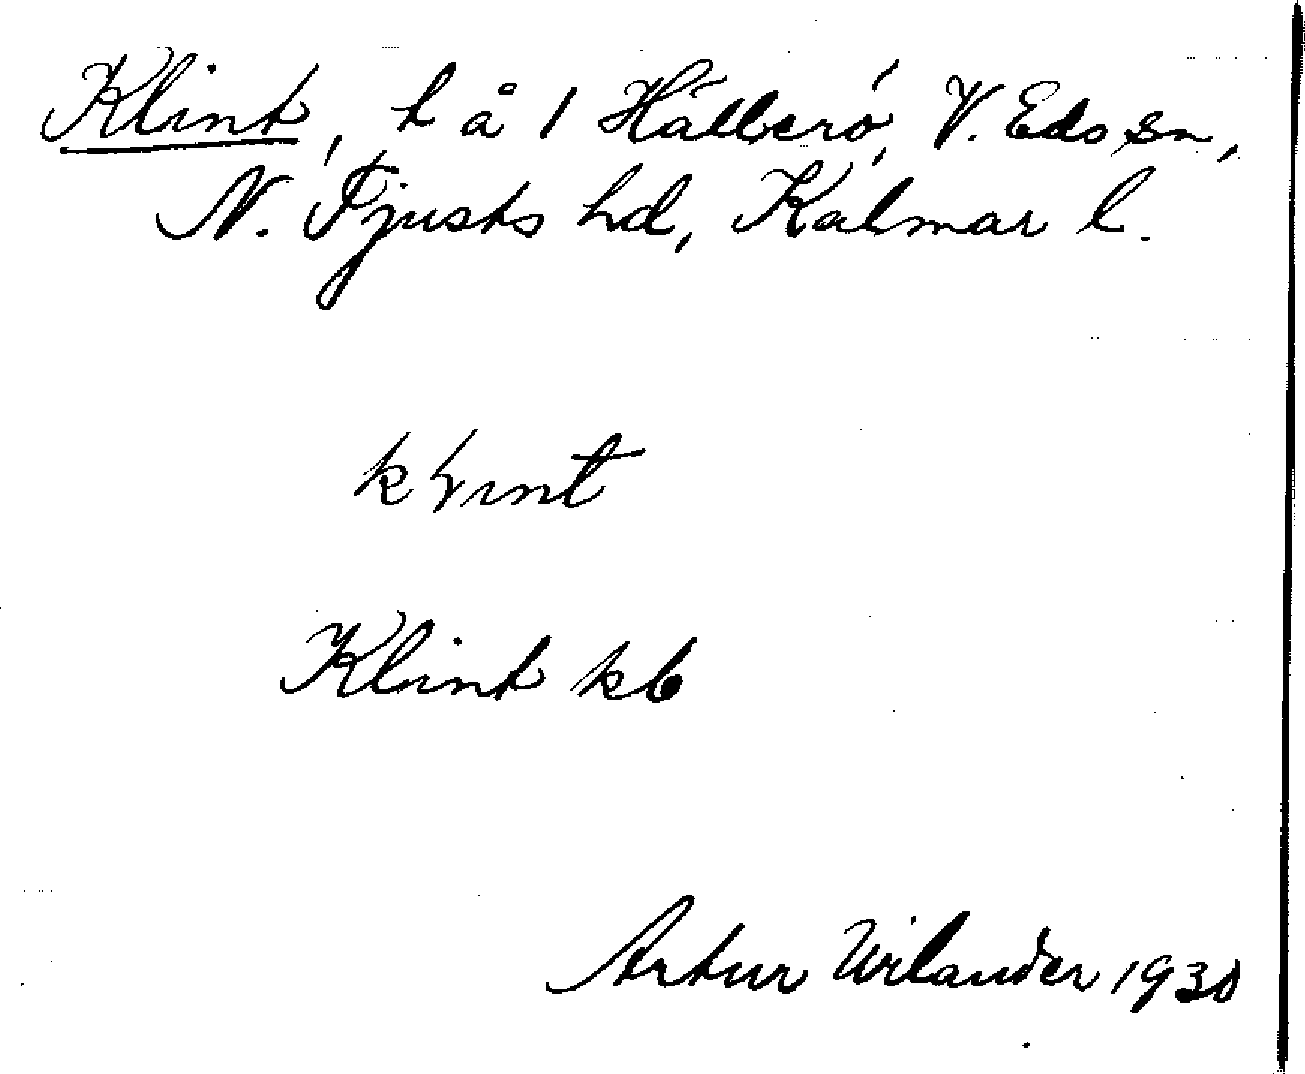 Klint, t å 1 Hällerö, V. Eds sn,
N. Tjusts hd, Kalmar l.
Klint kb
Artur Wilander 1930